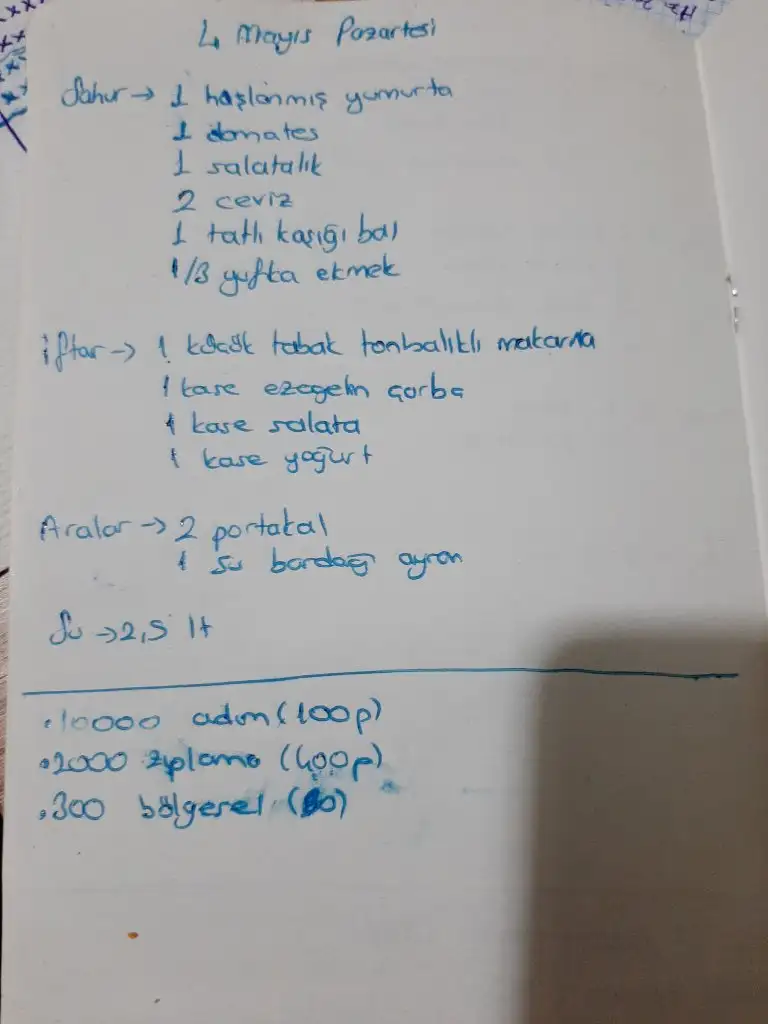 4 Mayıs Pazartesi
Sahur → 1 haşlanmış yumurta
1 domates
1 salatalık
2 ceviz
1 tatlı kaşığı bal
1/3 yufka ekmek
iftar → 1 küçük tabak tonbalıklı makarna
1 kase ezogelin çorba
1 kase salata
1 kase yoğurt
Aralar → 2 portakal
1 su bardağı ayran
Su → 2,5 lt
.10000 adım (100p)
.2000 zıplama (400p)
.300 bölgesel